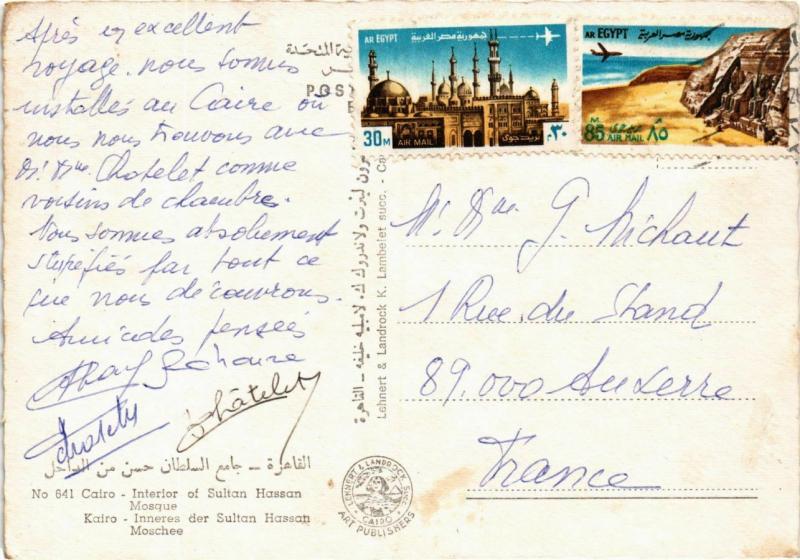 Après un excellent
voyage. nous sommes
installés au Caire où
nous nous trouvons avec
M. Mme Chatelet comme
voisins de chambre.
Nous sommes absolument
stupéfiés par tout ce
que nous découvrons.
Amicales pensées
Chatelet
Châtelet
القاهرة – جامع السلطان حسن من الداخل
No 641 Cairo - Interior of Sultan Hassan
Mosque
Kairo - Inneres der Sultan Hassan
Moschee
POS
AR EGYPT
جمهورية مصر العربية
30M
AIR MAIL
بريد جوى
٣٠ م
AR EGYPT
جمهورية مصر العربية
M.
85
AIR MAIL
٨٥
Lehnert & Landrock K. Lambelet succ. - Ca
LEHNERT & LANDROCK SUCS.
CAIRO
ART PUBLISHERS
M. Mme G. Michaut
1 Rue du Stand
89.000 Auxerre
France